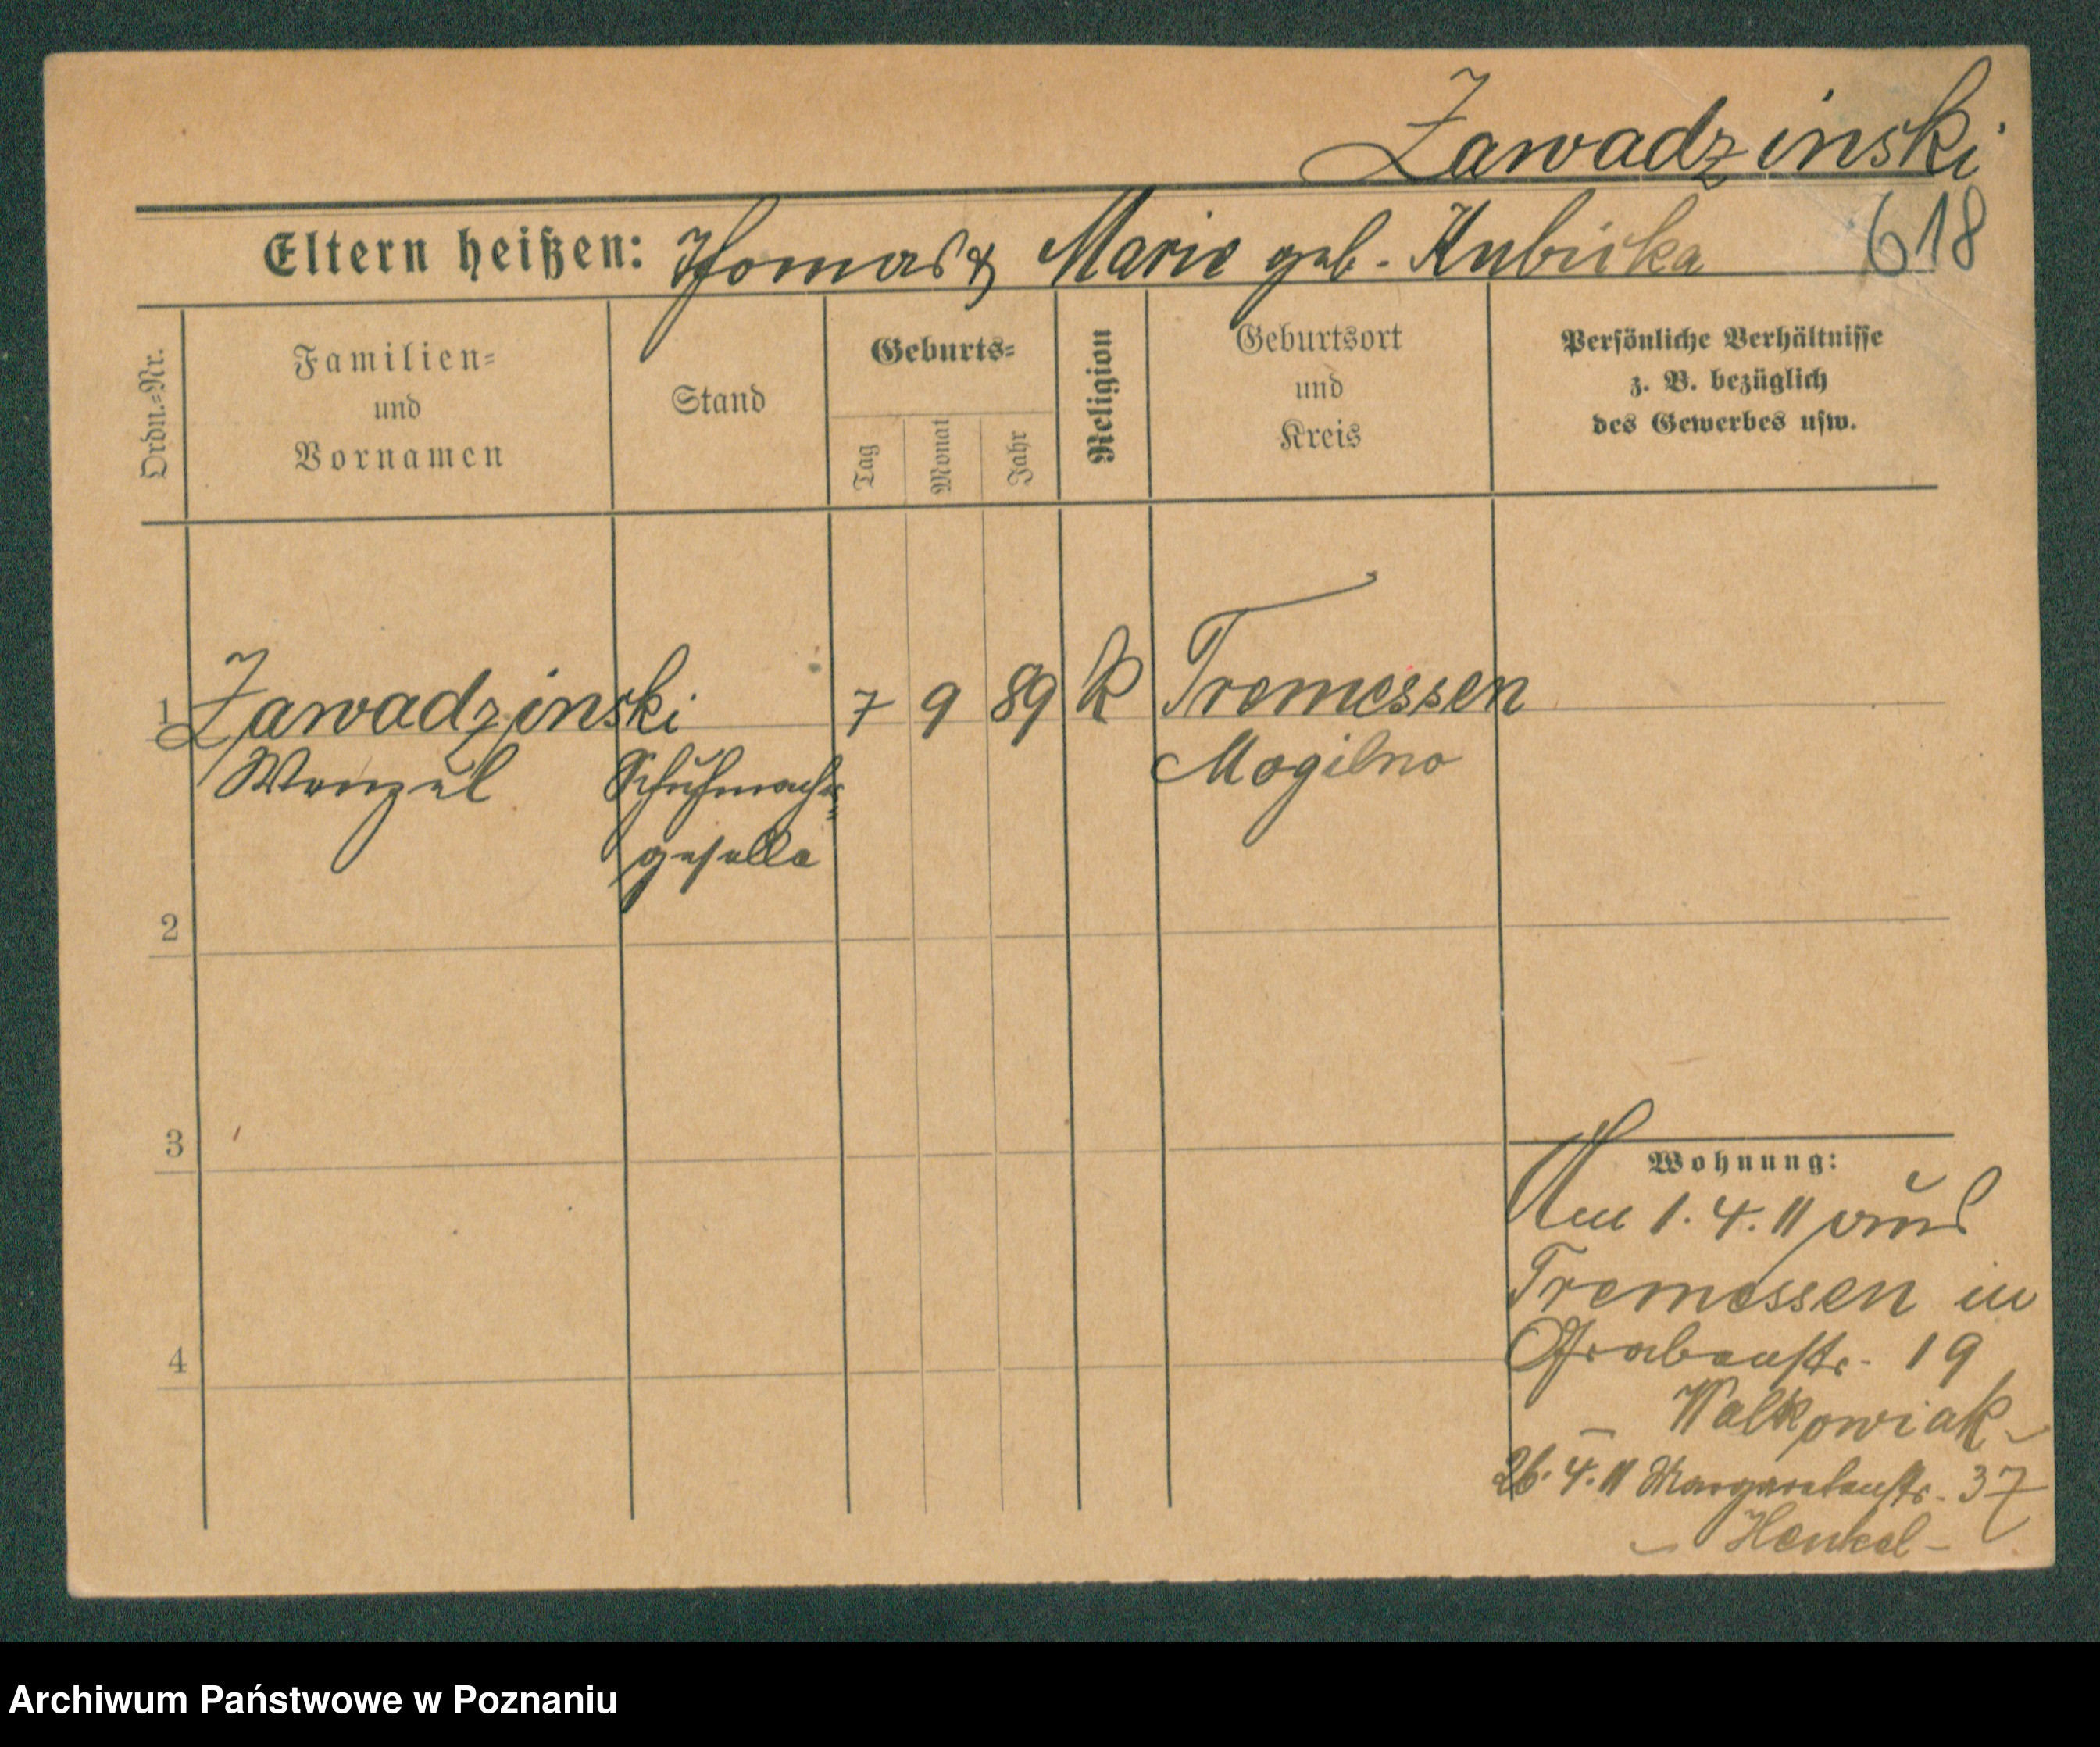 Zawadzinski
Eltern heißen: Thomas & Marie geb. Kubicka 618
Ordn.=Nr.
Familien=
und
Vornamen
Stand
Geburts=
Tag
Monat
Jahr
Religion
Geburtsort
und
Kreis
Persönliche Verhältnisse
z. B. bezüglich
des Gewerbes usw.
1 Zawadzinski 7 9 89 k Tremessen
Wenzel Schuhmacher= Mogilno
geselle
2
3
4
Wohnung:
Am 1.4.11 aus
Tremessen in
Grabenstr. 19
Walkowiak -
26.4.11 Margaretenstr. 37
- Henkel -
Archiwum Państwowe w Poznaniu